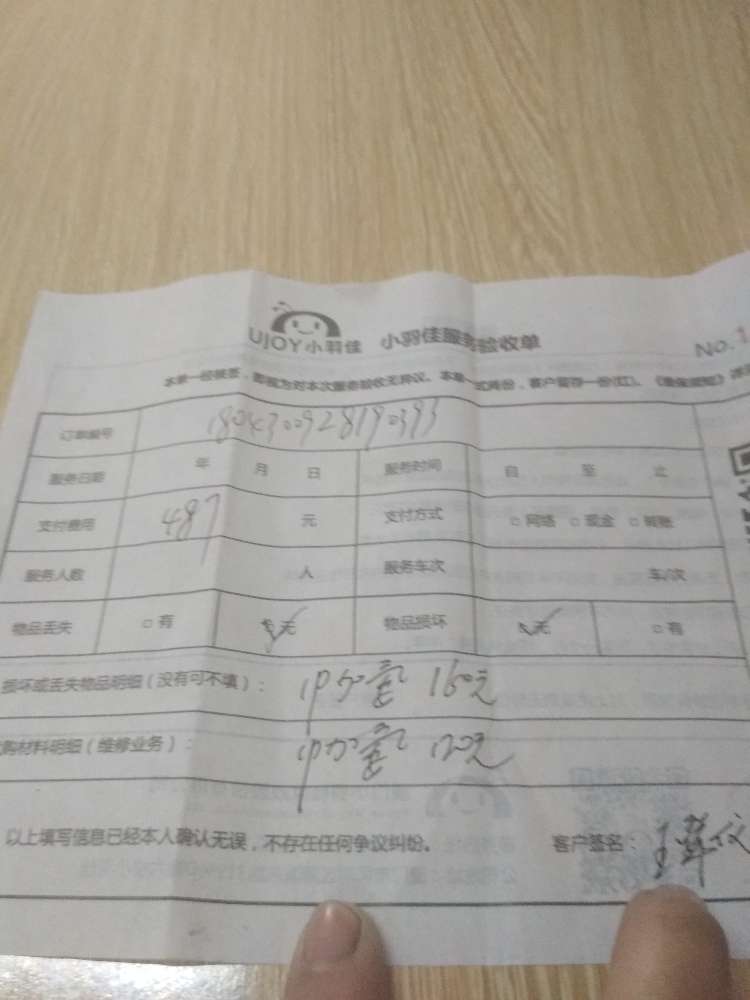 UJOY小羽佳 小羽佳服务验收单
No.1
本单一经被签，即视为对本次服务验收无异议。本单一式两份，客户留存一份(红)。
订单编号 1804300928190393
服务日期 年 月 日 服务时间 自 至 止
支付费用 487 元 支付方式 □网络 □现金 □转账
服务人数 人 服务车次 车/次
物品丢失 □有 ☑无 物品损坏 ☑无 □有
损坏或丢失物品明细（没有可不填）： 加氟 160元
购材料明细（维修业务）： 加氟 120元
以上填写信息已经本人确认无误，不存在任何争议纠纷。 客户签名：王